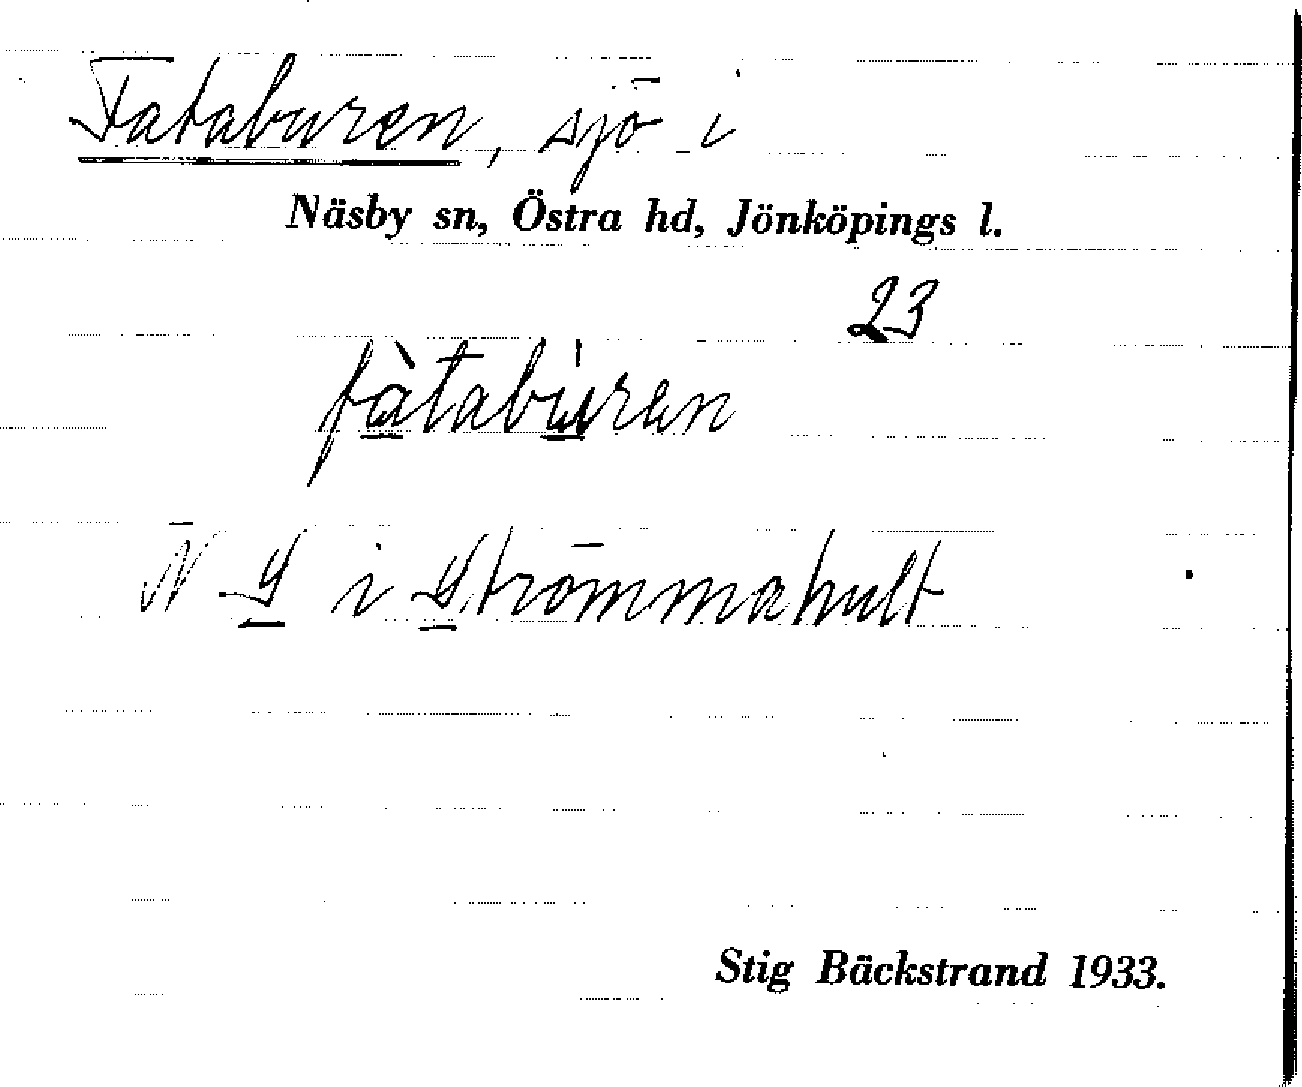 Fataburen, sjö i
Näsby sn, Östra hd, Jönköpings l.
23
fàtabùren
N S i Strömmahult
Stig Bäckstrand 1933.